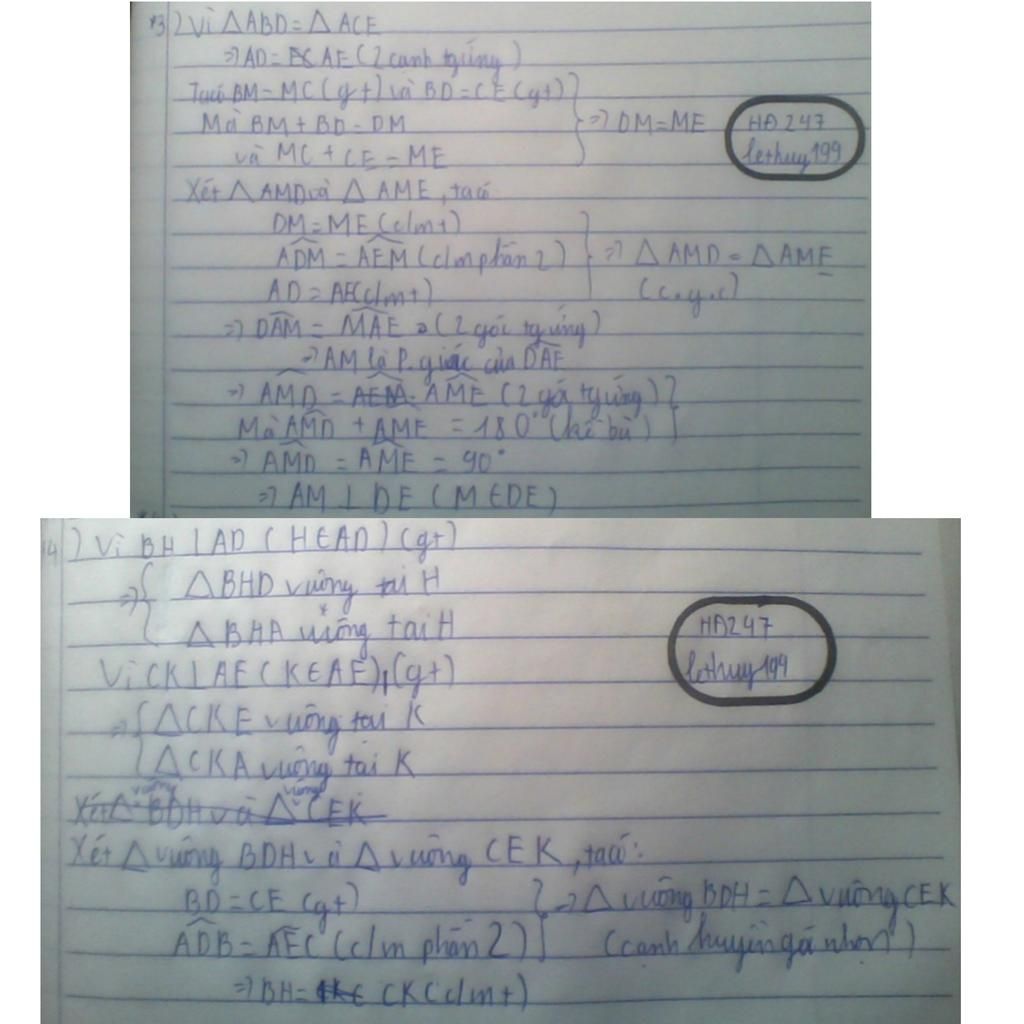 3) Vì △ABD = △ACE
⇒ AD = AE (2 cạnh tg ứng)
Ta có BM = MC (gt) và BD = CE (gt)
Mà BM + BD = DM
và MC + CE = ME
⇒ DM = ME
HĐ247
lethuy199
Xét △AMD và △AME, ta có
DM = ME (c/m t)
ADM = AEM (c/m phần 2)
AD = AE (c/m t)
⇒ △AMD = △AME
(c.g.c)
⇒ DAM = MAE (2 góc tg ứng)
⇒ AM là P. giác của DAE
⇒ AMD = AME (2 góc tg ứng)
Mà AMD + AME = 180° (kề bù)
⇒ AMD = AME = 90°
⇒ AM ⊥ DE (M ∈ DE)
4) Vì BH ⊥ AD (H ∈ AD) (gt)
⇒ { △BHD vuông tại H
△BHA vuông tại H
HĐ247
lethuy199
Vì CK ⊥ AE (K ∈ AE), (gt)
⇒ { △CKE vuông tại K
△CKA vuông tại K
Xét △ vuông BDH và △ vuông CEK
Xét △ vuông BDH và △ vuông CEK, ta có:
BD = CE (gt)
ADB = AEC (c/m phần 2)
⇒ △ vuông BDH = △ vuông CEK
(cạnh huyền góc nhọn)
⇒ BH = CK (c/m t)